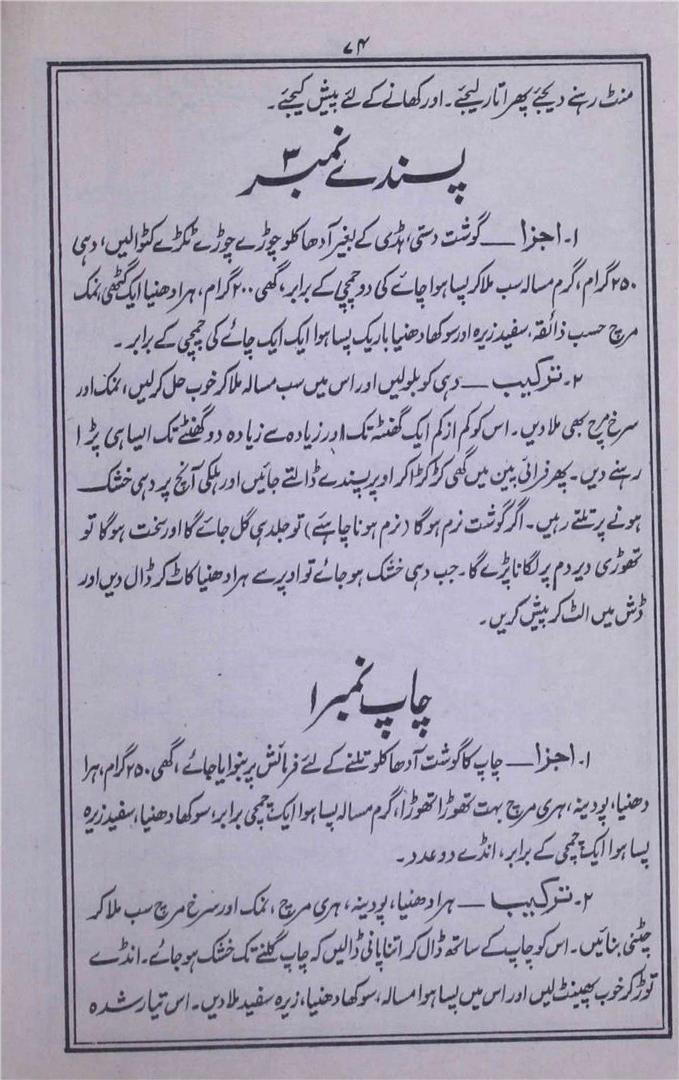 ۷۴
منٹ رہنے دیجئے پھر اتار لیجئے۔ اور کھانے کے لئے پیش کیجئے۔
پسندے نمبر ۳
۱۔ اجزا — گوشت دستی، ہڈی کے بغیر آدھا کلو چوڑے چوڑے ٹکڑے کٹوالیں، دہی
۲۵۰ گرام، گرم مسالہ سب ملا کر پسا ہوا چائے کی دو چمچی کے برابر، گھی ۲۰۰ گرام، ہرا دھنیا ایک گٹھی، نمک
مرچ حسب ذائقہ، سفید زیرہ اور سوکھا دھنیا باریک پسا ہوا ایک ایک چائے کی چمچی کے برابر۔
۲۔ ترکیب — دہی کو بلولیں اور اس میں سب مسالہ ملا کر خوب حل کر لیں، نمک اور
سرخ مرچ بھی ملا دیں۔ اس کو کم از کم ایک گھنٹہ تک اور زیادہ سے زیادہ دو گھنٹے تک ایسا ہی پڑا
رہنے دیں۔ پھر فرائی پین میں گھی کڑکڑا کر اوپر پسندے ڈالتے جائیں اور ہلکی آنچ پر دہی خشک
ہونے پر تلتے رہیں۔ اگر گوشت نرم ہوگا (نرم ہونا چاہیئے) تو جلد ہی گل جائے گا اور سخت ہوگا تو
تھوڑی دیر دم پر لگانا پڑے گا۔ جب دہی خشک ہو جائے تو اوپر سے ہرا دھنیا کاٹ کر ڈال دیں اور
ڈش میں الٹ کر پیش کریں۔
چاپ نمبر ۱
۱۔ اجزا — چاپ کا گوشت آدھا کلو تلنے کے لئے فرمائش پر بنوایا جائے، گھی ۲۵۰ گرام، ہرا
دھنیا، پودینہ، ہری مرچ بہت تھوڑا تھوڑا، گرم مسالہ پسا ہوا ایک چمچی برابر، سوکھا دھنیا، سفید زیرہ
پسا ہوا ایک چمچی کے برابر، انڈے دو عدد۔
۲۔ ترکیب — ہرا دھنیا، پودینہ، ہری مرچ، نمک اور سرخ مرچ سب ملا کر
چٹنی بنائیں۔ اس کو چاپ کے ساتھ ڈال کر اتنا پانی ڈالیں کہ چاپ گلنے تک خشک ہو جائے۔ انڈے
توڑ کر خوب پھینٹ لیں اور اس میں پسا ہوا مسالہ، سوکھا دھنیا، زیرہ سفید ملا دیں۔ اس تیار شدہ